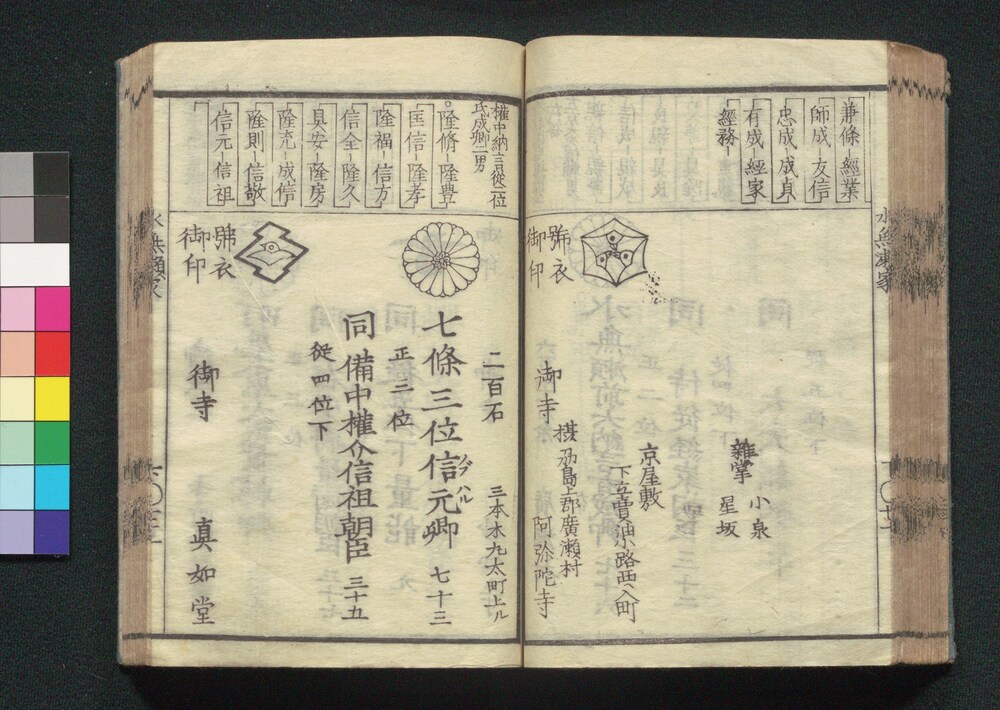 兼條-經業
師成-友信
忠成-成貞
有成-經家
經務
雜掌
小泉
星坂
京屋敷
下立賣油小路西入町
摂州島上郡廣瀬村
御寺
阿弥陀寺
御印
水無瀬家
權中納言從二位
氏成卿二男
隆脩-隆豊
匡信-隆孝
隆福-信方
信全-隆久
具安-隆房
隆充-成信
隆則-信敬
信元-信祖
二百石
三本木九太町上ル
七條三位信元卿
ノブハル
七十三
正三位
同備中權介信祖朝臣
三十五
從四位下
御印
御寺
真如堂
水無瀬家